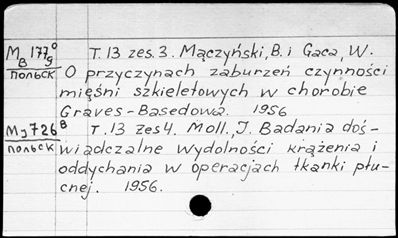 M_B 177⁰ T.13 zes.3. Mączyński, B. i Gaca, W.
9
польск О przyczynach zaburzeń czynności
mięśni szkieletowych w chorobie
Graves-Basedowa. 1956
Mg726⁸ T.13 zes4. Moll., J. Badania doś-
польск wiadczalne wydolności krążenia i
oddychania w operacjach tkanki płu-
cnej. 1956.